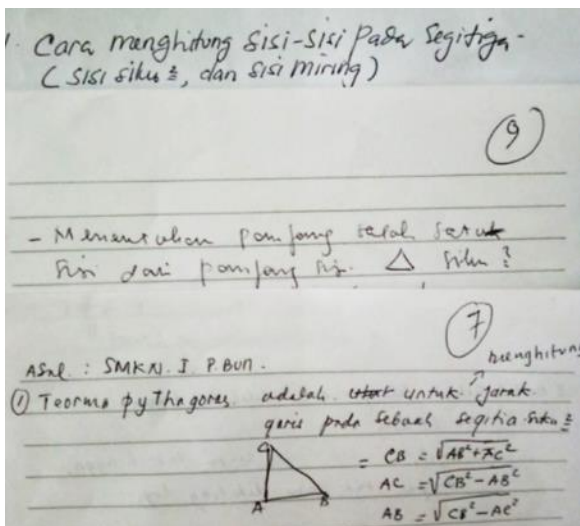 1. Cara menghitung Sisi-Sisi Pada Segitiga -
( SISI siku ², dan sisi miring )
9
- Menentukan panjang salah satu
sisi dari panjang sisi. △ siku ²
7
ASal : SMKN. I. P. BUN.
menghitung
① Teorma pythagoras adalah untuk jarak
garis pada sebuah segitia siku ²
C
A
B
= CB = √AB² + AC²
AC = √CB² - AB²
AB = √CB² - AC²